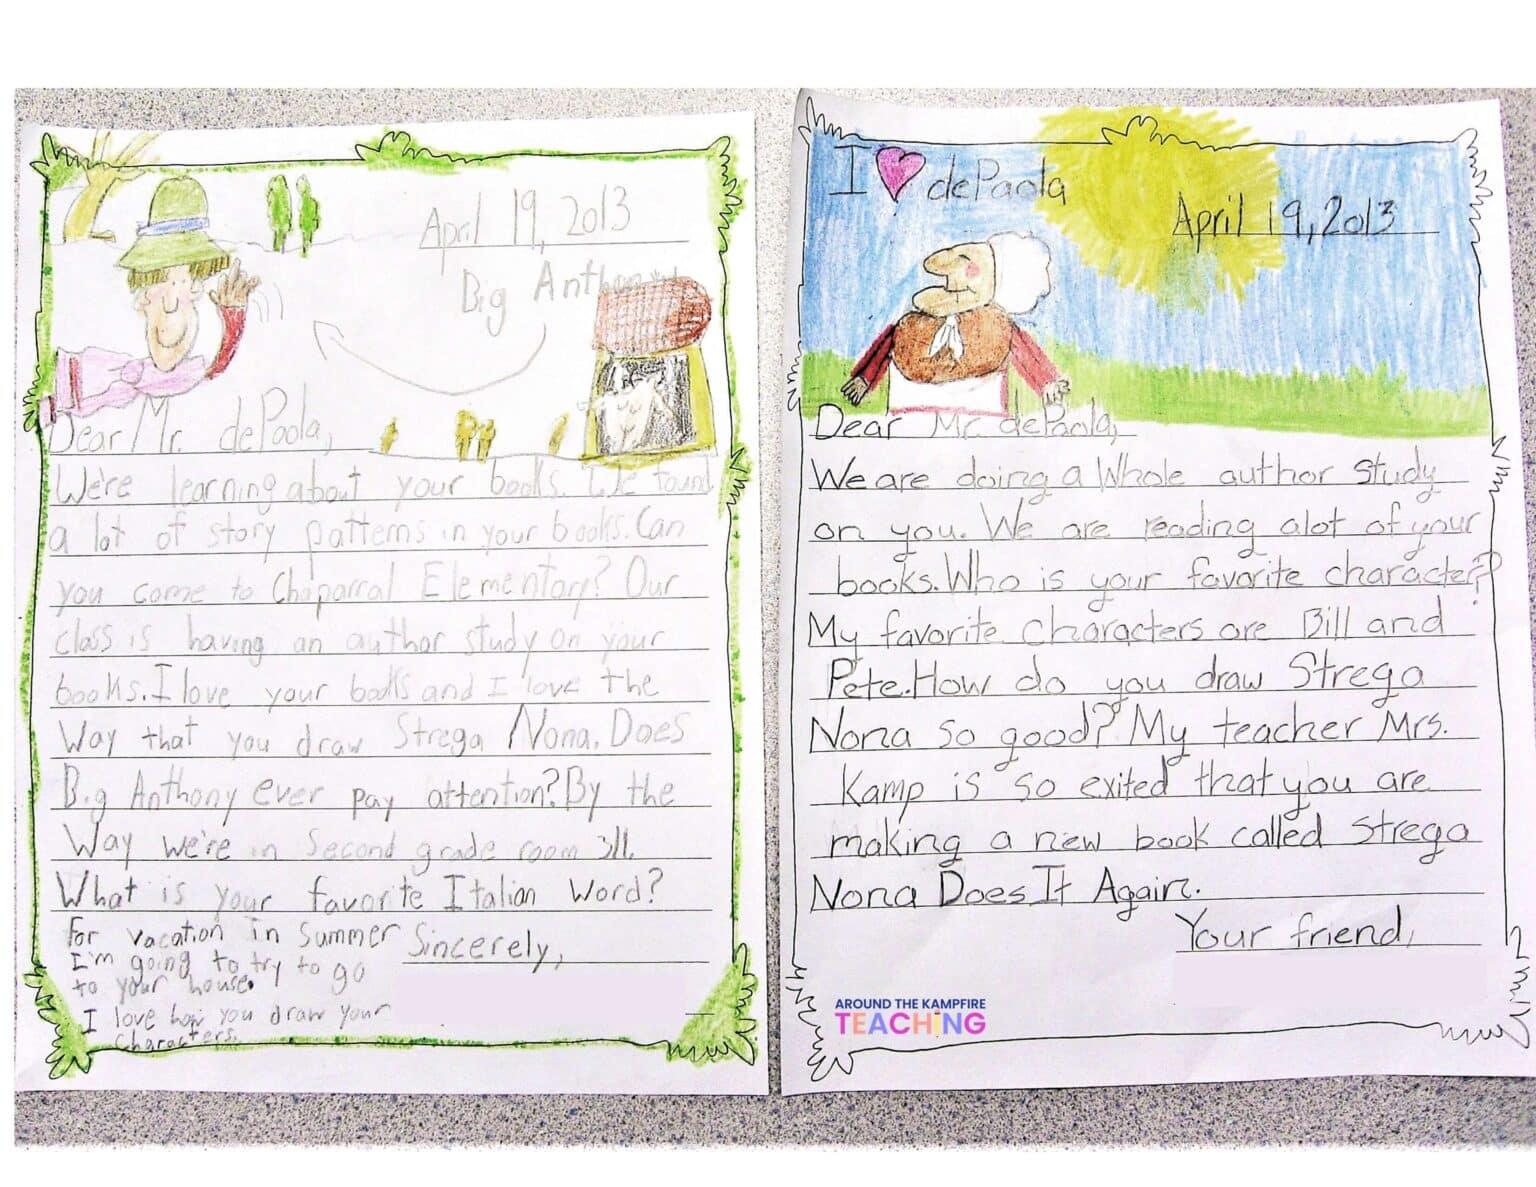 April 19, 2013
Big Anthony
Dear Mr. dePaola,
We're learning about your books. We found
a lot of story patterns in your books. Can
you come to Chaparral Elementary? Our
class is having an author study on your
books. I love your books and I love the
Way that you draw Strega Nona. Does
Big Anthony ever pay attention? By the
Way we're in Second grade room 311.
What is your favorite Italian Word?
For vacation in Summer
I'm going to try to go
to your house.
I love how you draw your
Characters.
Sincerely,
I ♥ dePaola
April 19, 2013
Dear Mr. dePaola,
We are doing a Whole author study
on you. We are reading alot of your
books. Who is your favorite character?
My favorite characters are Bill and
Pete. How do you draw Strega
Nona so good? My teacher Mrs.
Kamp is so exited that you are
making a new book called Strega
Nona Does It Again.
Your friend,
AROUND THE KAMPFIRE
TEACHING